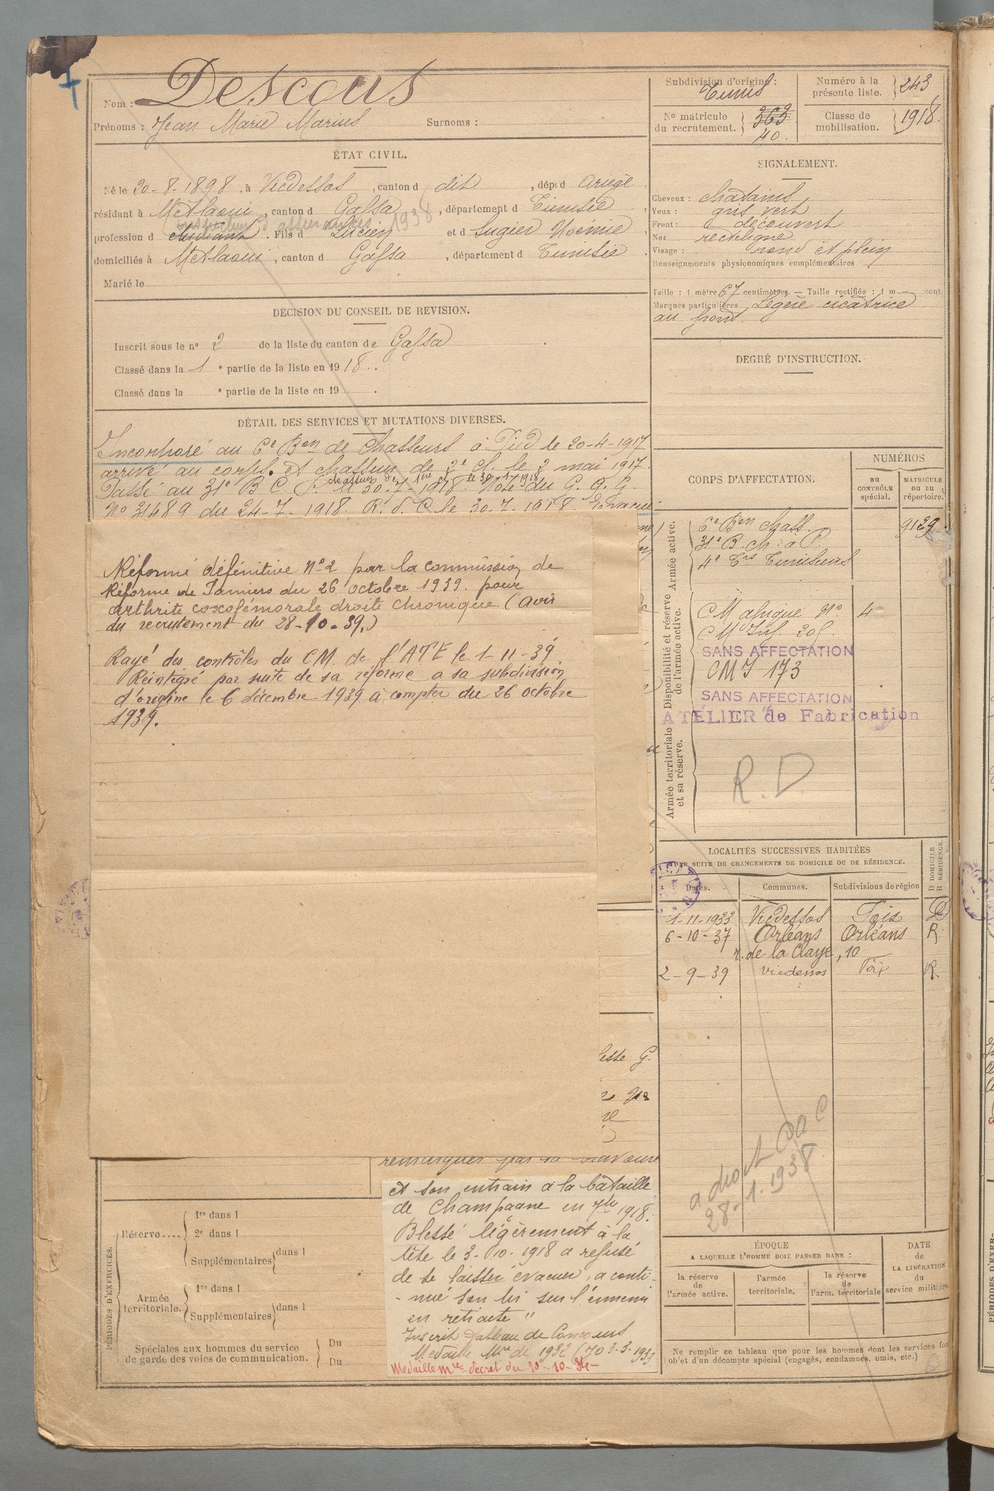 Nom : Descous
Prénoms : Jean Marie Marius Surnoms :
ÉTAT CIVIL.
Né le 20-8-1898, à Vicdessos, canton d dit, dépt d Ariège
résidant à Metlaoui, canton d Gafsa, département d Tunisie
profession d étudiant. Fils d Lucien et d Sugier Noemie
1938
domiciliés à Metlaoui, canton d Gafsa, département d Tunisie
Marié le
DÉCISION DU CONSEIL DE REVISION.
Inscrit sous le nº 2 de la liste du canton de Gafsa
Classé dans la 1 e partie de la liste en 1918.
Classé dans la e partie de la liste en 19 .
DÉTAIL DES SERVICES ET MUTATIONS DIVERSES.
Incorporé au 6e Bon de Chasseurs à Pied le 20-4-1917
arrivé au corps et chasseur de 2e Cl. le 2 mai 1917.
Passé au 31e B C P. le 30-7-1918. Note du G. Q. G.
Nº 31489 du 24-7-1918. R. d. C. le 30-7-1918. Evacué
Réformé définitive Nº 2 par la commission de
Réforme de Pamiers du 26 octobre 1939. pour
arthrite coxofémorale droite chronique (avis
du recrutement du 28-10-39.)
Rayé des contrôles du CM. de l'ATE le 1-11-39
Réintégré par suite de sa réforme a sa subdivision
d'origine le 6 décembre 1939 à compter du 26 octobre
1939.
remarquer par sa bravoure
et son entrain a la bataille
de Champagne en 7bre 1918.
Blessé légèrement à la
tête le 3-10-1918 a refusé
de se laisser évacuer, a conti-
-nué son tir sur l'ennemi
en retraite"
Inscrit Tableau de Concours
Médaille Mre de 1932 (JO 3-3-1933
Médaille Mre décret du 30-10-34-
PÉRIODES D'EXERCICES.
Réserve....
1re dans l
2e dans l
Supplémentaires dans l
Armée territoriale.
1re dans l
Supplémentaires dans l
Spéciales aux hommes du service
de garde des voies de communication.
Du
Du
Subdivision d'origine :
Tunis
Numéro à la
présente liste. 243
Nº matricule
du recrutement. 363
40.
Classe de
mobilisation. 1918.
SIGNALEMENT.
Cheveux : chatains
Yeux : gris vert
Front : découvert
Nez rectiligne
Visage : rond et plein
Renseignements physionomiques complémentaires
Taille : 1 mètre 67 centimètres. — Taille rectifiée : 1 m cent.
Marques particulières Légère cicatrice
au front.
DEGRÉ D'INSTRUCTION.
CORPS D'AFFECTATION.
NUMÉROS
AU
CONTRÔLE
spécial.
MATRICULE
ou au
répertoire.
Armée active.
6e Bon Chass. 9139
31e B. ch. à P
4e Trs Tunisiens
Disponibilité et réserve
de l'armée active.
CM afrique Nº 4
CM Inf. 205
SANS AFFECTATION
CMI 173
SANS AFFECTATION
ATELIER de Fabrication
Armée territoriale
et sa réserve.
R. D
LOCALITÉS SUCCESSIVES HABITÉES
PAR SUITE DE CHANGEMENTS DE DOMICILE OU DE RÉSIDENCE.
Dates. Communes. Subdivisions de région D DOMICILE R RÉSIDENCE.
1-11-1933 Vicdessos Foix D
6-10-37 Orléans Orléans R
r. de la Claye, 10
2-9-39 Vicdessos Foix R.
28-1-1938
ÉPOQUE
A LAQUELLE L'HOMME DOIT PASSER DANS :
la réserve
de l'armée active.
l'armée
territoriale.
la réserve
de
l'arm. territoriale
DATE
de
LA LIBÉRATION
du
service militaire.
Ne remplir ce tableau que pour les hommes dont les services font
l'objet d'un décompte spécial (engagés, condamnés, omis, etc.)